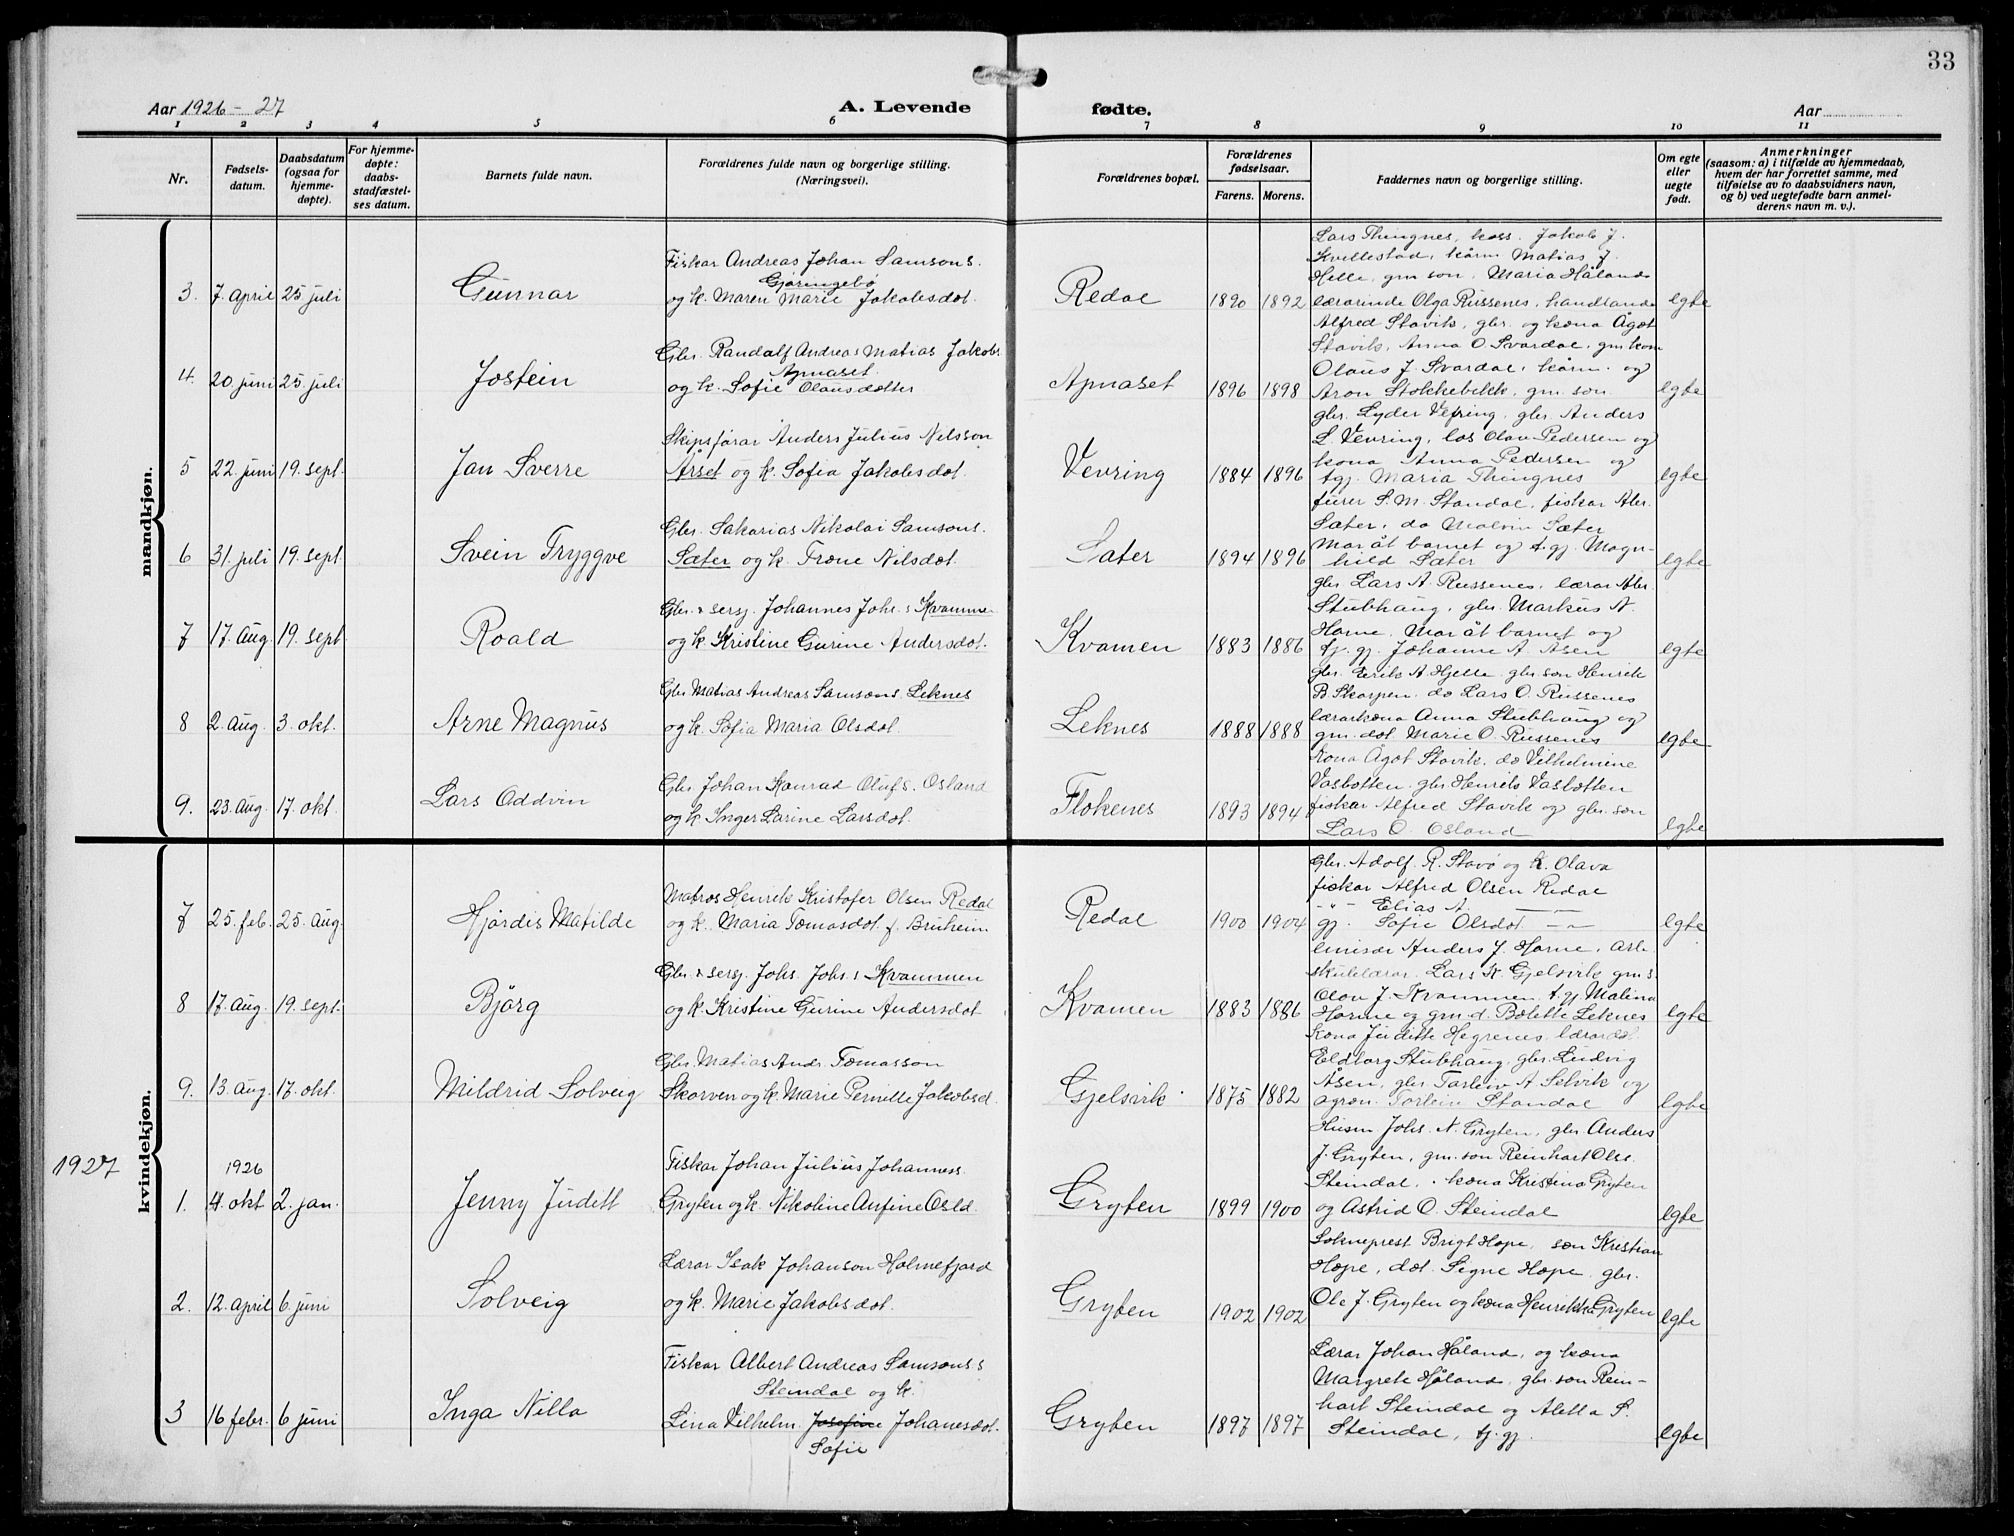 33
Aar 1926-27
A. Levende fødte.
Aar
1 2 3 4 5 6 7 8 9 10 11
Nr.
Fødsels-
datum.
Daabsdatum
(ogsaa for
hjemme-
døpte).
For hjemme-
døpte:
daabs-
stadfæstel-
ses datum.
Barnets fulde navn.
Forældrenes fulde navn og borgerlige stilling.
(Næringsvei).
Forældrenes bopæl.
Forældrenes
fødselsaar.
Farens. Morens.
Faddernes navn og borgerlige stilling.
Om egte
eller
uegte
født.
Anmerkninger
(saasom: a) i tilfælde av hjemmedaab,
hvem der har forrettet samme, med
tilføielse av to daabsvidners navn,
og b) ved uegtefødte barn anmel-
derens navn m. v.).
mandkjøn.
3. 7. april 25 juli
Gunnar
Fiskar Andreas Johan Samsons.
Gjøringebø
og k. Maren Marie Jakobsdot.
Redal 1890 1892
Lars Thingnes, kass. Jakob J.
Kvellestad, kårm. Matias J.
Helle, gm. son, Maria Håland
lærarinde Olga Russenes, handlande
egte
4. 20. juni 25. juli
Jostein
Gbr. Randolf Andreas Matias Jakobs.
Apnaset
og k. Sofie Olausdotter
Apnaset 1896 1898
Alfred Stavik, gbr. og kona Ågot
Stavik, Anna O. Svardal, gm. kon
Olaus J. Svardal, kårm. og
Aron Stokkebekk, gm. son
egte
5 22. juni 19. sept.
Jan Sverre
Skipsførar Anders Julius Nilsson
Årset og k. Sofia Jakobsdot.
Vevring 1884 1896
gbr. Lyder Vefring, gbr. Anders
L. Vevring, los Olav Pedersen og
kona Anna Pedersen og
tgj. Maria Thingnes
egte
6 31. juli 19. sept
Svein Tryggve
Gbr. Sakarias Nikolai Samsons.
Sæter og k. Trone Nilsdot.
Sæter 1894 1896
furer S. M. Standal, fiskar Abr.
Sæter, do Malvin Sæter
Mor åt barnet og t. gj. Magn-
hild Sæter
egte
7 17. aug. 19. sept
Roald
Gbr. & sersj. Johannes Johs. Kvammen
og k. Kristine Gurine Andersdot.
Kvamen 1883 1886
gbr. Lars A. Russenes, lærar Abr.
Stubhaug, gbr. Markus A.
Horne. Mor åt barnet og
tj. gj. Johanne A. Åsen
egte
8 2. aug. 3. okt.
Arne Magnus
Gbr Matias Andreas Samsons. Leknes
og k. Sofia Maria Olsdot.
Leknes 1888 1888
gbr. Eirik A. Hjelle, gbr. son Henrik
B. Skorpen, do Lars O. Russenes
lærarkona Anna Stubhaug og
gm. dot. Marie O. Russenes
egte
9. 23. aug. 17. okt.
Lars Oddvin
Gbr Johan Konrad Olufs. Osland
og k. Inger Larine Larsdot.
Flokenes 1893 1894
Kona Agot Stavik, do Vilhelmine
Vasbotten, gbr. Henrik Vasbotten
fiskar Alfred Stavik og gbr. son
Lars O. Osland
egte
kvindekjøn.
7 25. feb. 25. aug.
Hjørdis Matilde
Matros Henrik Kristofer Olsen Redal
og k. Maria Tomasdot. f. Bruheim
Redal 1900 1904
Gbr. Adolf R. Stavø og k. Olava
fiskar Alfred Olsen Redal
-"- Elias A. -
gj. Sofie Olsdot. - "-
egte
8 17. aug. 19. sept.
Bjørg
Gbr. & sersj. Johs. Johs. Kvammen
og k. Kristine Gurine Andersdot
Kvamen 1883 1886
emisær Anders J. Horne, arb.
skulelærar. Lars K. Gjelsvik gm. s.
Olav J. Kvammen, t. gj. Malina
Horne og gm. d. Bolette Leknes
egte
9. 13 aug. 17. okt.
Mildrid Solveig
Gbr. Matias Andr. Tomasson
Skorven og k. Marie Pernille Jakobsd.
Gjelsvik 1875 1882
Kona Juditte Hegrenes, lærardot.
Eldborg Stubhaug, gbr. Ludvig
Åsen, gbr. Torleiv A. Selvik og
agron. Torleiv Standal
egte
1927
1926
1. 4. okt 2. jan.
Jenny Judett
Fiskar Johan Julius Johanness.
Gryten og k. Nikoline Anfine Osld.
Gryten 1899 1900
Husm Johs. N. Gryten, gbr. Anders
J. Gryten, gm. son Reinhart Ols.
Steindal, kona Kristina Gryten
og Astrid O. Steindal
egte
2. 12. april 6. juni
Solveig
Lærar Isak Johanson Holmefjord
og k. Marie Jakobsdot.
Gryten 1902 1902
Sokneprest Brigt Hope, son Kristian
Hope, dot. Signe Hope, gbr.
Ole J. Gryten og kona Henrikka Gryten
egte
3 16 febr. 6 juni
Inga Nilla
Fiskar Albert Andreas Samsons.
Steindal og k.
Lina Vilhelm. Josefine Johanesdot.
Sofie
Gryten 1897 1897
Lærar Johan Håland, og kona
Margrete Håland, gbr. son Rein-
hart Steindal og Aletta S.
Steindal, tj. gj.
egte